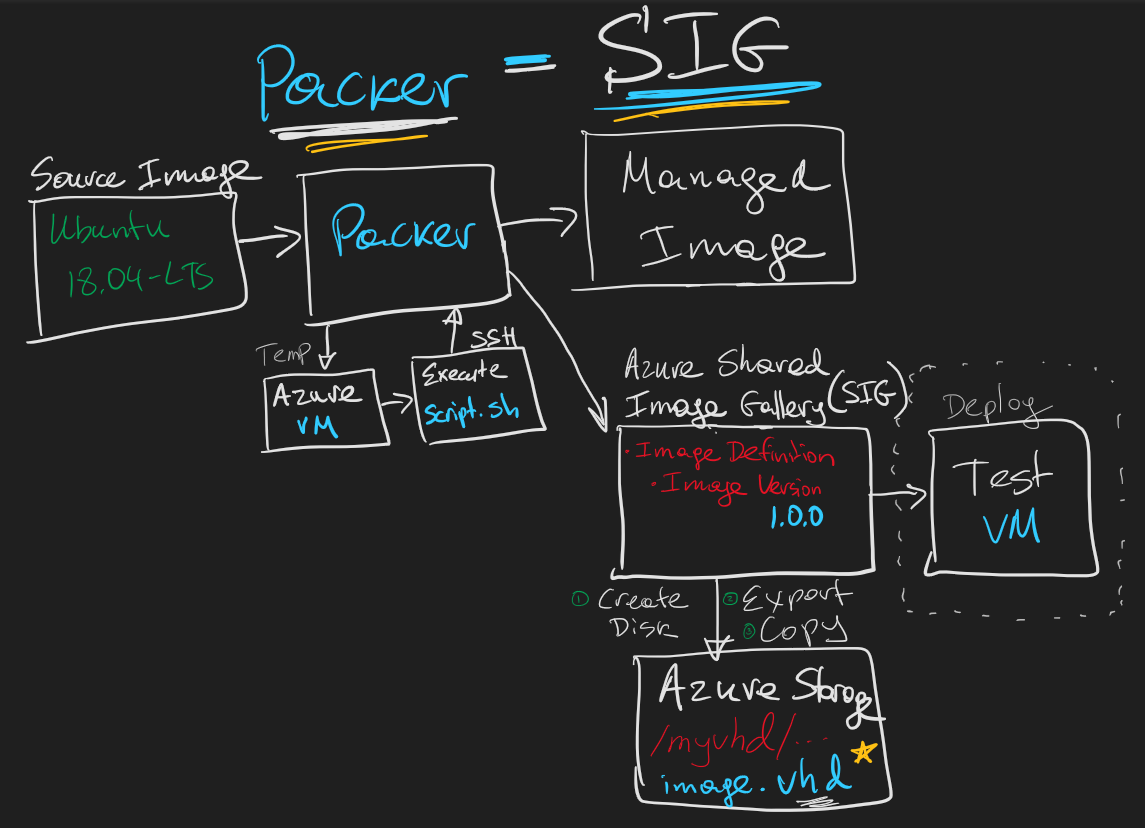 Packer = SIG
Source Image
Ubuntu
18.04-LTS
Packer
Managed
Image
Temp
Azure
VM
SSH
Execute
script.sh
Azure Shared
Image Gallery (SIG)
• Image Definition
• Image Version
1.0.0
Deploy
Test
VM
① Create
Disk
② Export
③ Copy
Azure Storage
/myvhd/...
image.vhd